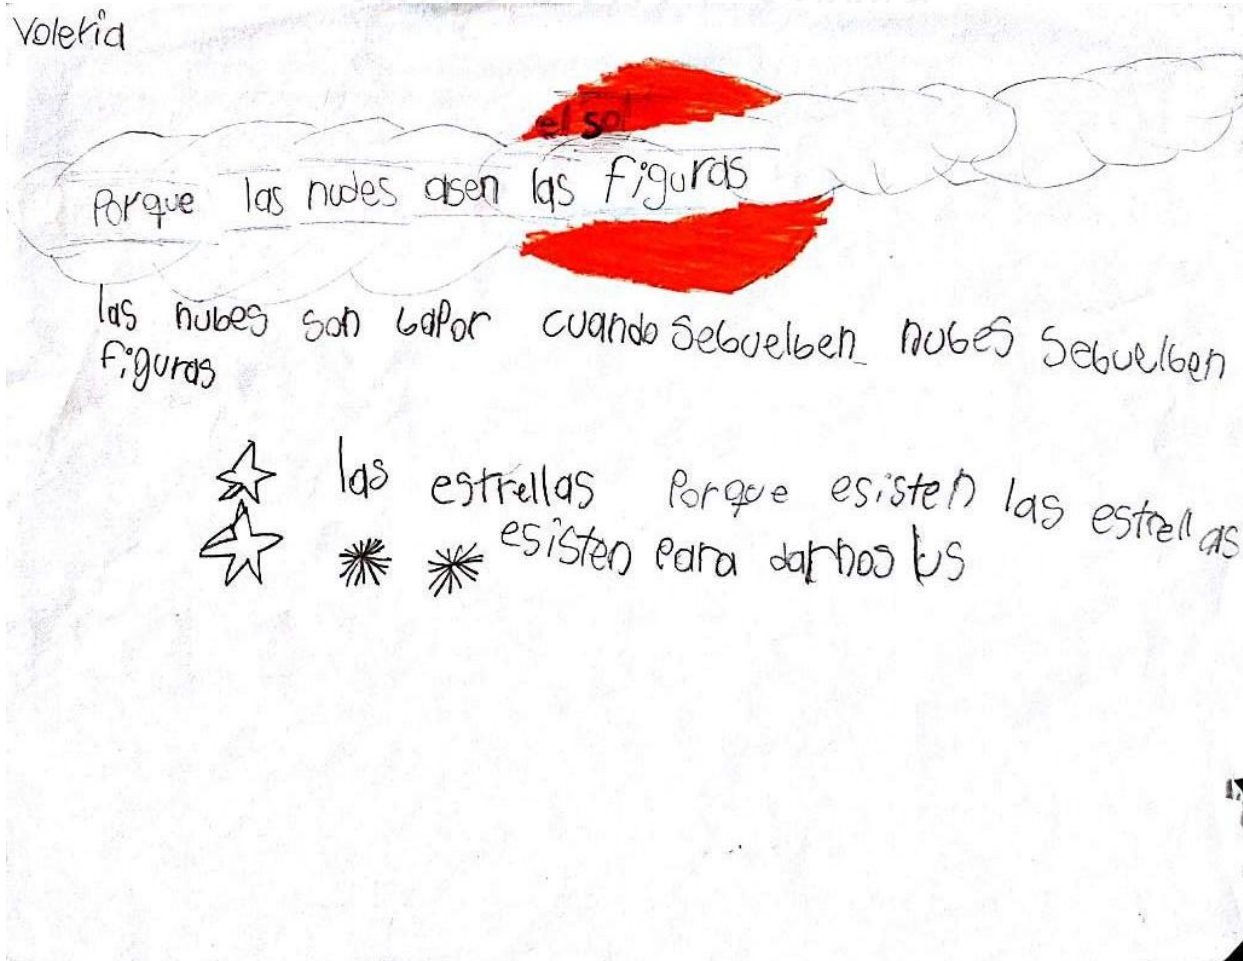 Voleria
el sol
Porque las nudes asen las figuras
las nubes son bapor cuando sebuelben nubes sebuelben
figuras
las estrellas porque esisten las estrellas
esisten para darnos lus